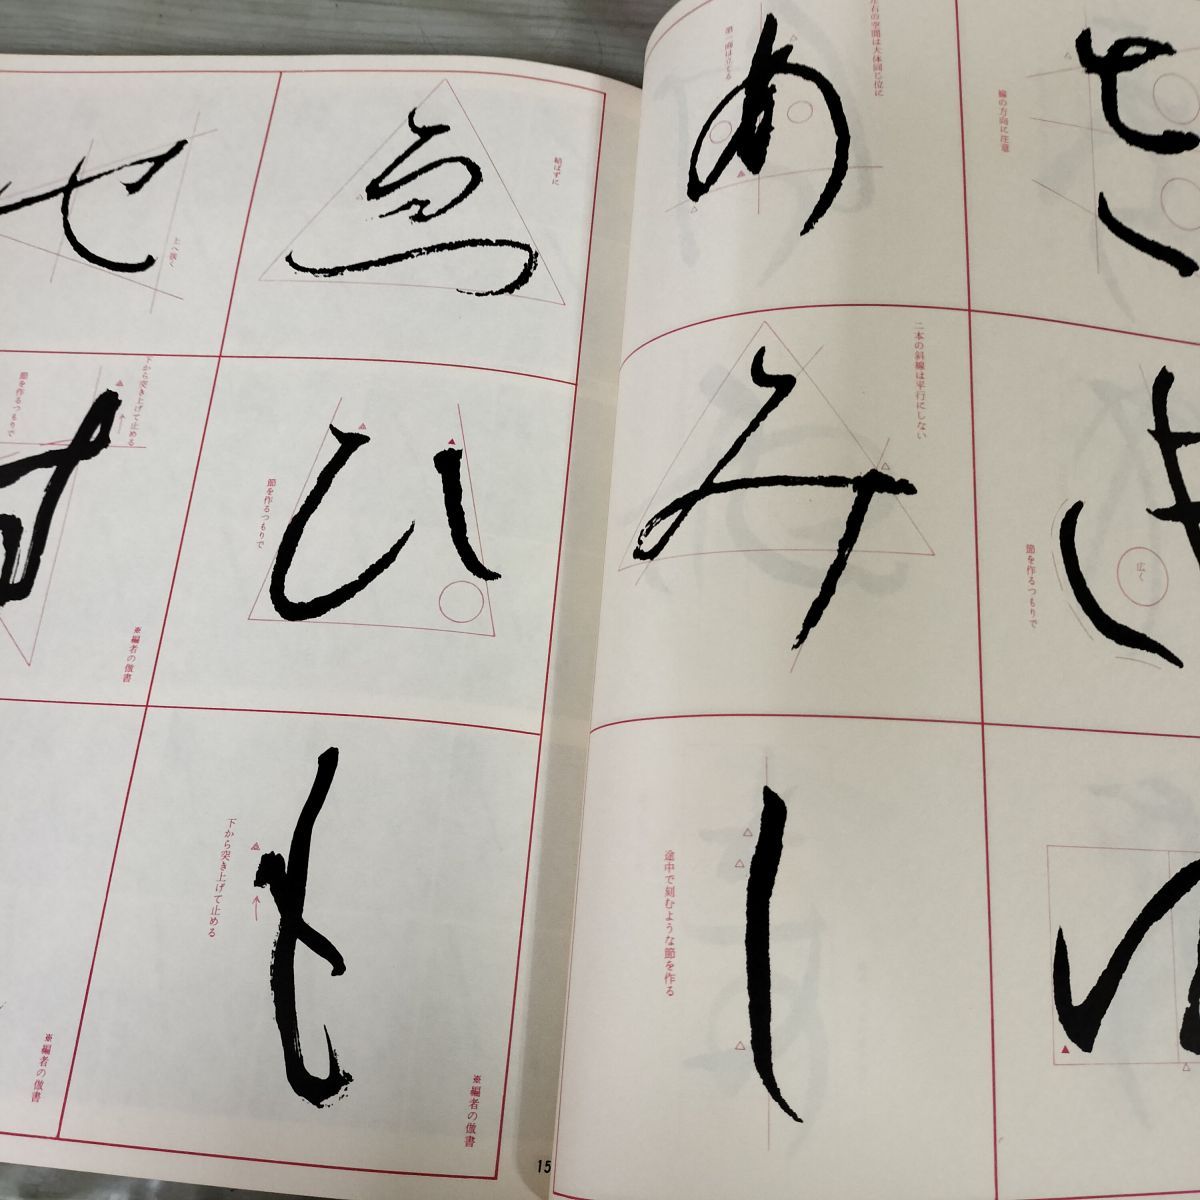 さ
線の方向に注意
左右の空間は大体同じ位に
あ
第一画は立てる
き
広く
節を作るつもりで
二本の斜線は平行にしない
み
ゆ
し
途中で刻むような節を作る
結ばずに
ゑ
上へ強く
せ
ひ
節を作るつもりで
下から突き上げて止める
す
節を作るつもりで
※編者の倣書
も
下から突き上げて止める
※編者の倣書
※編者の倣書
15